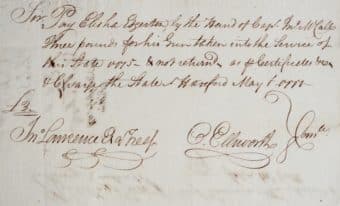 Sir Pay Elisha Egerton by the Hand of Capt. Jno. McCall
Three pounds for his Gun taken into the Service of
this State 1775 & not returnd as pr Certificates &c
& Charge the State Hartford May 1st 1777
£3
Jno Lawrence Esqr Treasr O. Ellsworth } Comtte